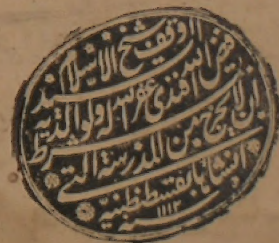 اوقفه شيخ الاسلام السيد
فيض الله افندى غفر الله له ولوالديه
بشرط ان لا يخرج من المدرسة التى
انشاها بقسطنطينية
سنة ١١١٢